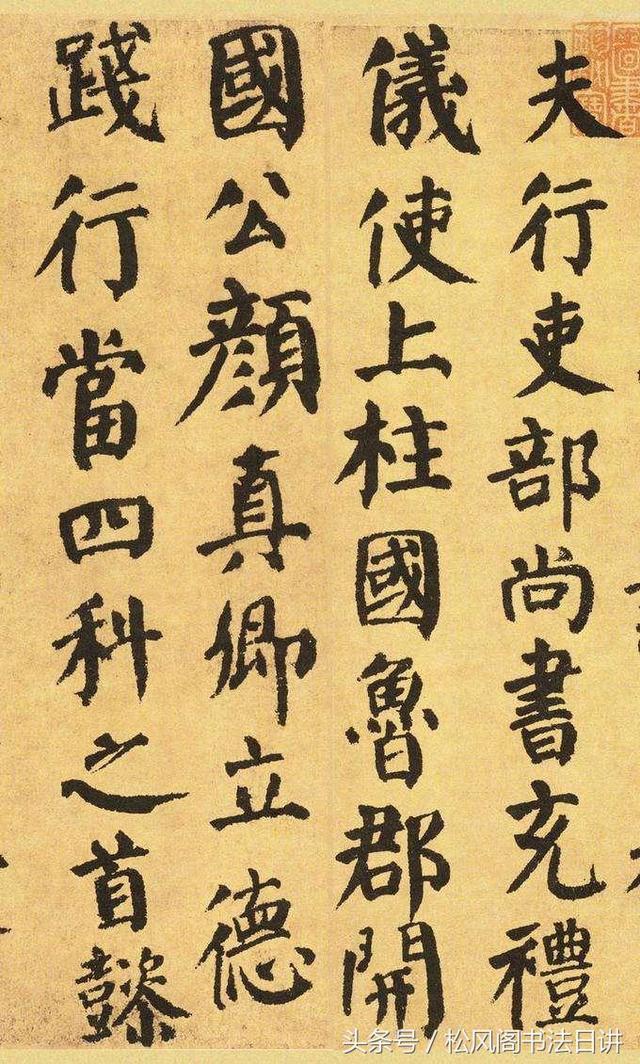 夫行吏部尚書充禮
儀使上柱國魯郡開
國公顏真卿立德
踐行當四科之首懿
头条号/松风阁书法日讲